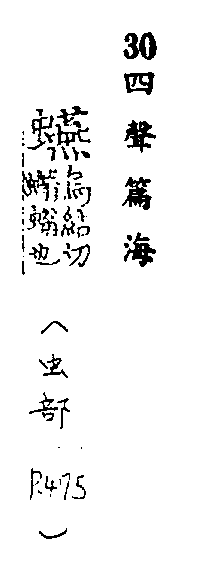 30四聲篇海
烏結切
螉也
(虫部 P.475)